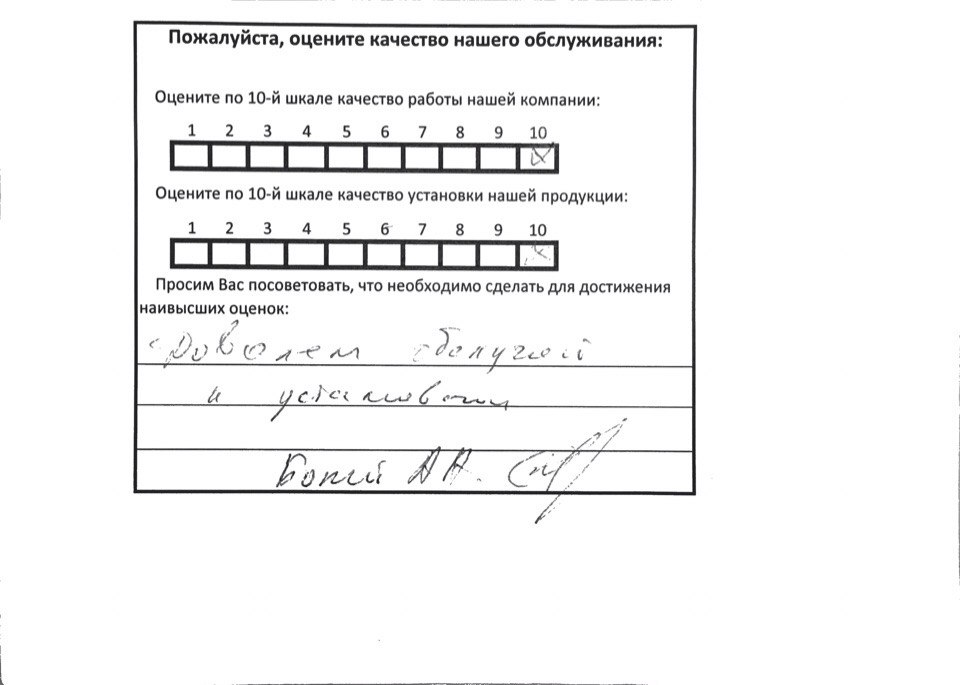 Пожалуйста, оцените качество нашего обслуживания:
Оцените по 10-й шкале качество работы нашей компании:
1 2 3 4 5 6 7 8 9 10
Оцените по 10-й шкале качество установки нашей продукции:
1 2 3 4 5 6 7 8 9 10
Просим Вас посоветовать, что необходимо сделать для достижения
наивысших оценок:
Доволен
и установкой